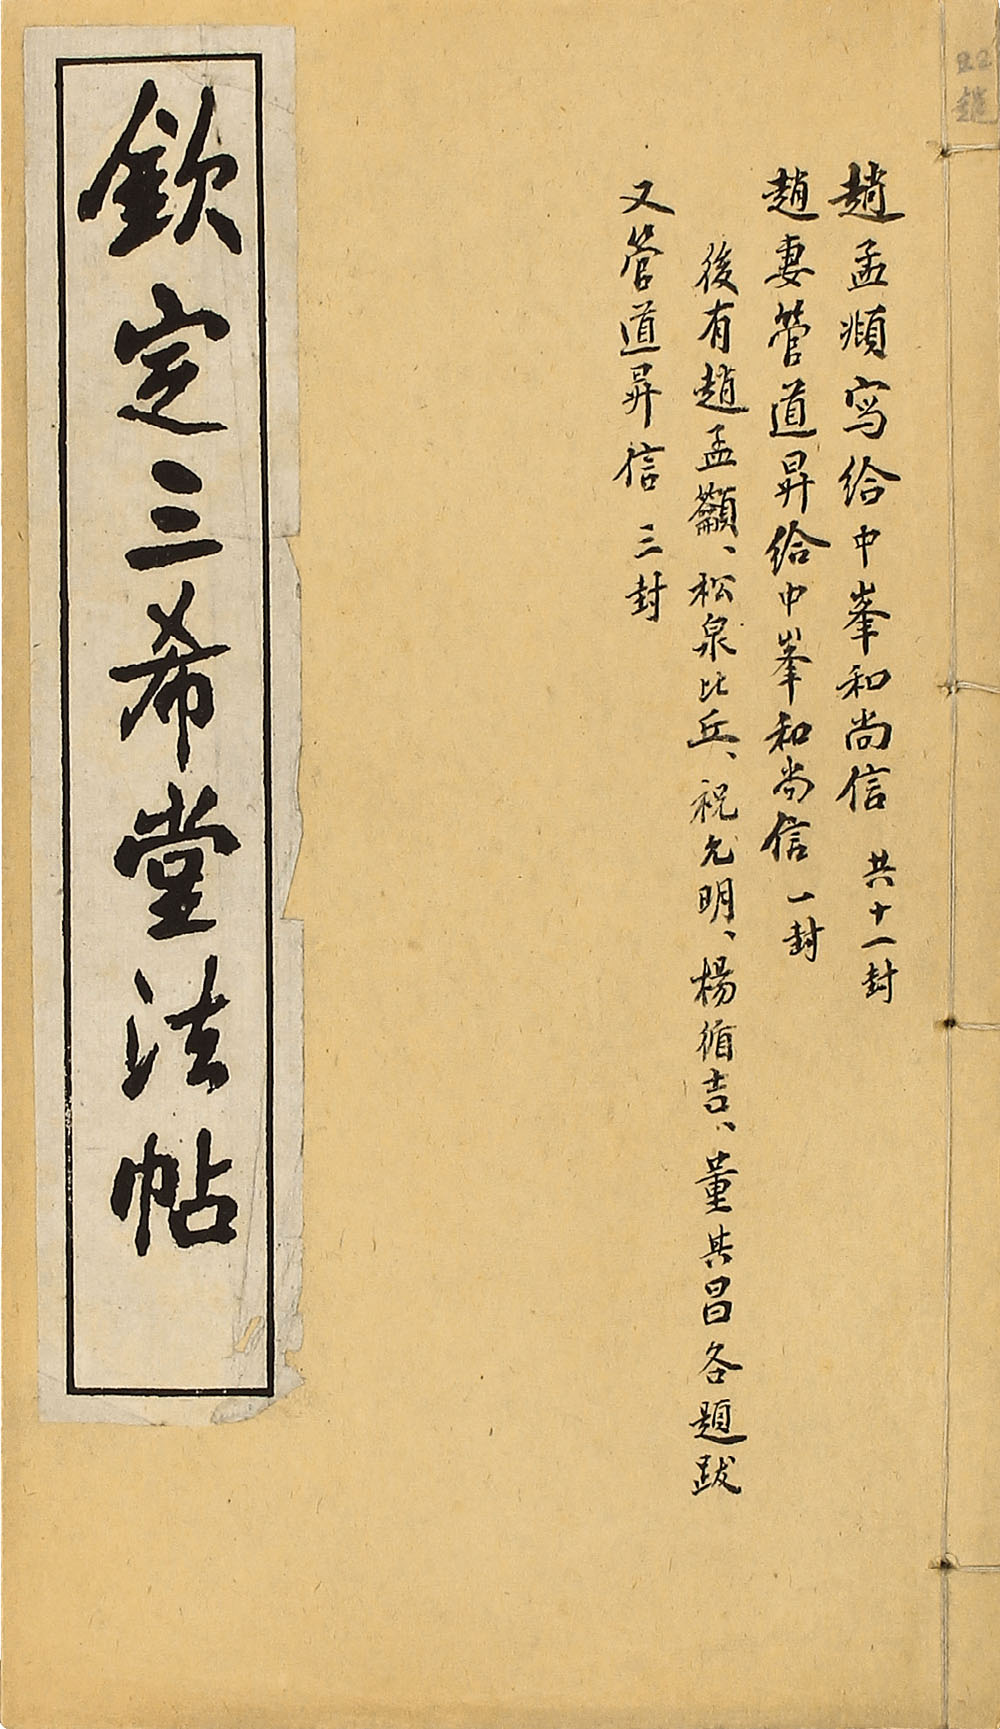 22
趙
趙孟頫写給中峯和尚信 共十一封
趙妻管道昇給中峯和尚信 一封
後有趙孟籲、松泉比丘、祝允明、楊循吉、董其昌各題跋
又管道昇信 三封
欽定三希堂法帖